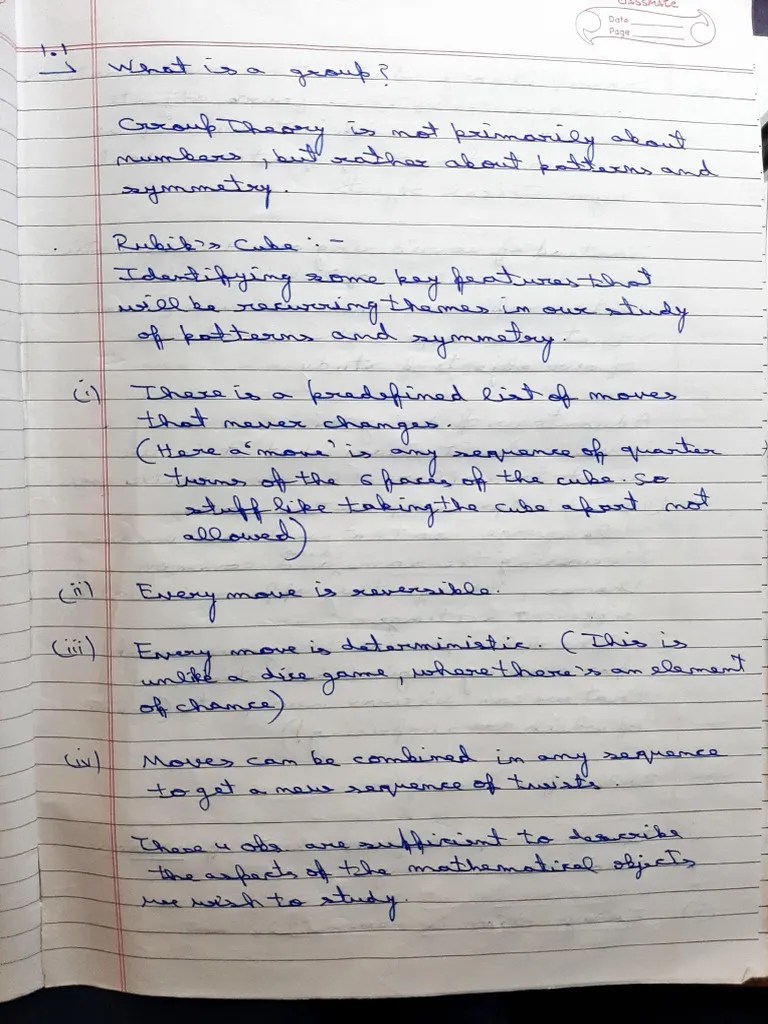 classmate
Date
Page
1.1
What is a group?
Group Theory is not primarily about
numbers, but rather about patterns and
symmetry.
Rubik's Cube :-
Identifying some key features that
will be recurring themes in our study
of patterns and symmetry.
(i) There is a predefined list of moves
that never changes.
(Here a 'move' is any sequence of quarter
turns of the 6 faces of the cube. so
stuff like taking the cube apart not
allowed)
(ii) Every move is reversible.
(iii) Every move is deterministic. (This is
unlike a dice game, where there's an element
of chance)
(iv) Moves can be combined in any sequence
to get a new sequence of twists.
These 4 obs are sufficient to describe
the aspects of the mathematical objects
we wish to study.